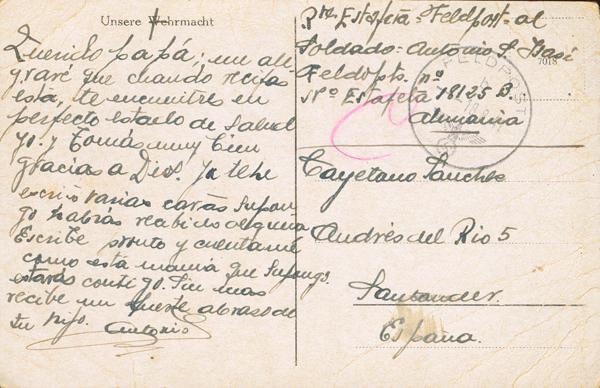 Unsere Wehrmacht
Querido papá; me ale
graré que cuando recibas
esta, te encuentres en
perfecto estado de salud
yo y Tomás muy bien
gracias a Dios. Ya te he
escrito varias cartas supon-
go habrás recibido alguna
Escribe pronto y cuentame
como está mamá que supongo
estarás contigo. Sin mas
recibe un fuerte abraso de
tu hijo. Antonio
Rte. Estafeta - Feldpost - al
Soldado - Antonio S.
7018
Feldpts. nº
Nº Estafeta 18125 B.
Alemania
FELDPOST
Cayetano Sanches
Andrés del Rio 5
Santander
España.